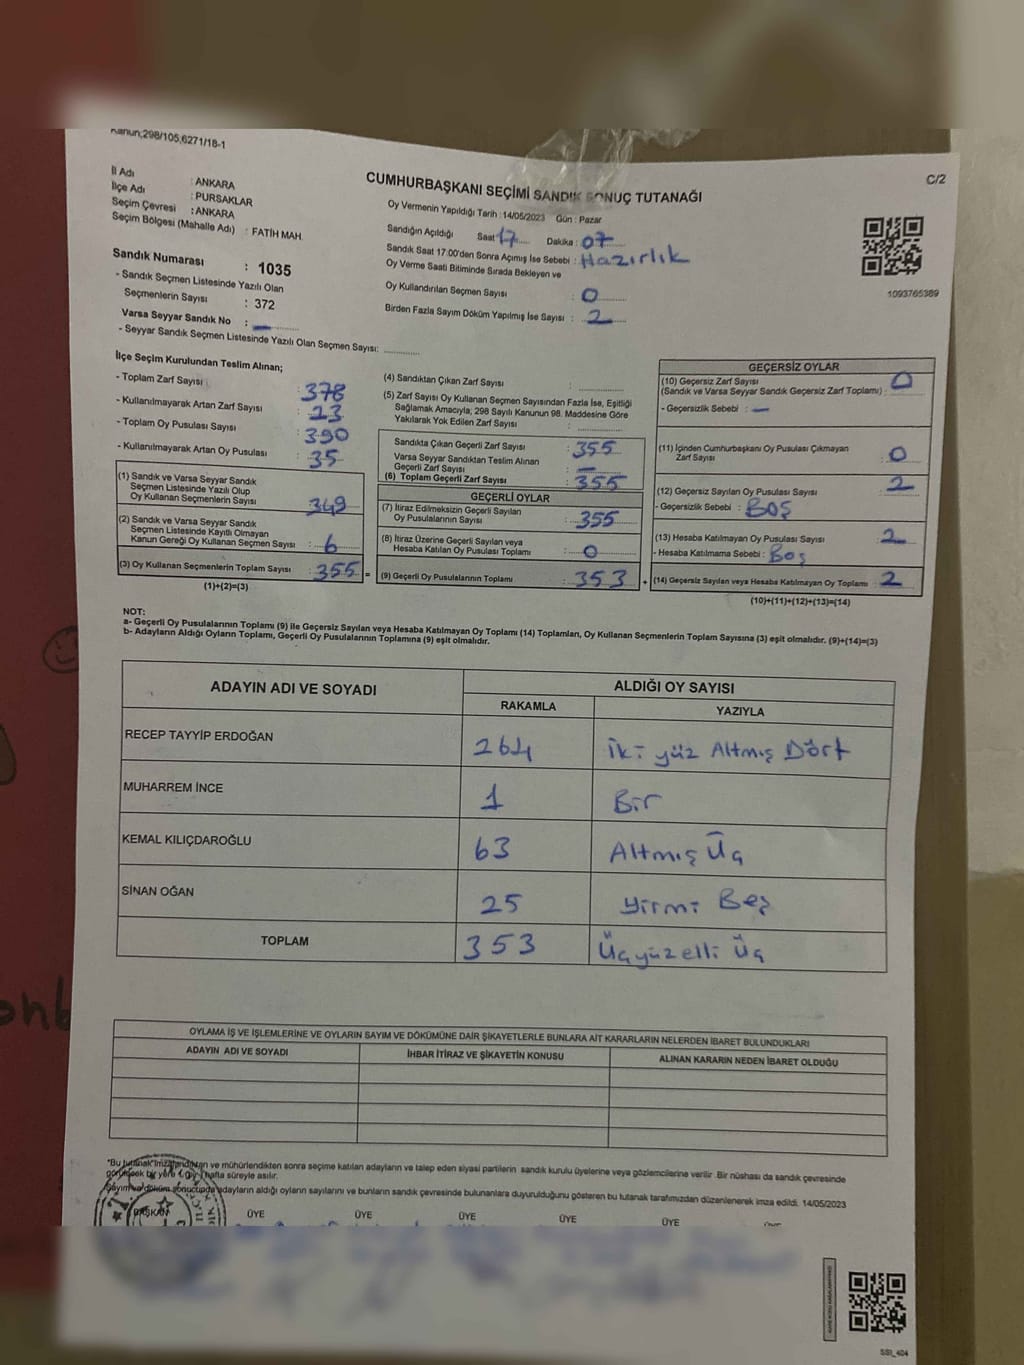 Kanun;298/105,6271/18-1
C/2
İl Adı : ANKARA
İlçe Adı : PURSAKLAR
Seçim Çevresi : ANKARA
Seçim Bölgesi (Mahalle Adı) : FATİH MAH.
Sandık Numarası : 1035
- Sandık Seçmen Listesinde Yazılı Olan
Seçmenlerin Sayısı : 372
Varsa Seyyar Sandık No : —
- Seyyar Sandık Seçmen Listesinde Yazılı Olan Seçmen Sayısı: ............
CUMHURBAŞKANI SEÇİMİ SANDIK SONUÇ TUTANAĞI
Oy Vermenin Yapıldığı Tarih : 14/05/2023 Gün : Pazar
Sandığın Açıldığı Saat 17 Dakika : 07
Sandık Saat 17.00'den Sonra Açımış İse Sebebi : Hazırlık
Oy Verme Saati Bitiminde Sırada Bekleyen ve
Oy Kullandırılan Seçmen Sayısı : 0
Birden Fazla Sayım Döküm Yapılmış İse Sayısı : 2
1093765389
İlçe Seçim Kurulundan Teslim Alınan;
- Toplam Zarf Sayısı : 378
- Kullanılmayarak Artan Zarf Sayısı : 23
- Toplam Oy Pusulası Sayısı : 390
- Kullanılmayarak Artan Oy Pusulası : 35
(1) Sandık ve Varsa Seyyar Sandık
Seçmen Listesinde Yazılı Olup
Oy Kullanan Seçmenlerin Sayısı : 349
(2) Sandık ve Varsa Seyyar Sandık
Seçmen Listesinde Kayıtlı Olmayan
Kanun Gereği Oy Kullanan Seçmen Sayısı : 6
(3) Oy Kullanan Seçmenlerin Toplam Sayısı : 355 =
(1)+(2)=(3)
(4) Sandıktan Çıkan Zarf Sayısı : ............
(5) Zarf Sayısı Oy Kullanan Seçmen Sayısından Fazla İse, Eşitliği
Sağlamak Amacıyla; 298 Sayılı Kanunun 98. Maddesine Göre
Yakılarak Yok Edilen Zarf Sayısı : ............
Sandıkta Çıkan Geçerli Zarf Sayısı : 355
Varsa Seyyar Sandıktan Teslim Alınan
Geçerli Zarf Sayısı : —
(6) Toplam Geçerli Zarf Sayısı : 355
GEÇERLİ OYLAR
(7) İtiraz Edilmeksizin Geçerli Sayılan
Oy Pusulalarının Sayısı : 355
(8) İtiraz Üzerine Geçerli Sayılan veya
Hesaba Katılan Oy Pusulası Toplamı : 0
(9) Geçerli Oy Pusulalarının Toplamı : 353 +
GEÇERSİZ OYLAR
(10) Geçersiz Zarf Sayısı
(Sandık ve Varsa Seyyar Sandık Geçersiz Zarf Toplamı) : 0
- Geçersizlik Sebebi : —
(11) İçinden Cumhurbaşkanı Oy Pusulası Çıkmayan
Zarf Sayısı : 0
(12) Geçersiz Sayılan Oy Pusulası Sayısı : 2
- Geçersizlik Sebebi : BOŞ
(13) Hesaba Katılmayan Oy Pusulası Sayısı : 2
- Hesaba Katılmama Sebebi : Boş
(14) Geçersiz Sayılan veya Hesaba Katılmayan Oy Toplamı : 2
(10)+(11)+(12)+(13)=(14)
NOT:
a- Geçerli Oy Pusulalarının Toplamı (9) ile Geçersiz Sayılan veya Hesaba Katılmayan Oy Toplamı (14) Toplamları, Oy Kullanan Seçmenlerin Toplam Sayısına (3) eşit olmalıdır. (9)+(14)=(3)
b- Adayların Aldığı Oyların Toplamı, Geçerli Oy Pusulalarının Toplamına (9) eşit olmalıdır.
ADAYIN ADI VE SOYADI ALDIĞI OY SAYISI
RAKAMLA YAZIYLA
RECEP TAYYİP ERDOĞAN 264 İki yüz Altmış Dört
MUHARREM İNCE 1 Bir
KEMAL KILIÇDAROĞLU 63 Altmış Üç
SİNAN OĞAN 25 Yirmi Beş
TOPLAM 353 Üçyüzelli Üç
OYLAMA İŞ VE İŞLEMLERİNE VE OYLARIN SAYIM VE DÖKÜMÜNE DAİR ŞİKAYETLERLE BUNLARA AİT KARARLARIN NELERDEN İBARET BULUNDUKLARI
ADAYIN ADI VE SOYADI İHBAR İTİRAZ VE ŞİKAYETİN KONUSU ALINAN KARARIN NEDEN İBARET OLDUĞU
*Bu tutanak imzalandıktan ve mühürlendikten sonra seçime katılan adayların ve talep eden siyasi partilerin sandık kurulu üyelerine veya gözlemcilerine verilir. Bir nüshası da sandık çevresinde
görülecek bir yere 1 (bir) hafta süreyle asılır.
Sayım ve döküm sonucunda adayların aldığı oyların sayılarını ve bunların sandık çevresinde bulunanlara duyurulduğunu gösteren bu tutanak tarafımızdan düzenlenerek imza edildi. 14/05/2023
BAŞKAN ÜYE ÜYE ÜYE ÜYE ÜYE
SSI_404